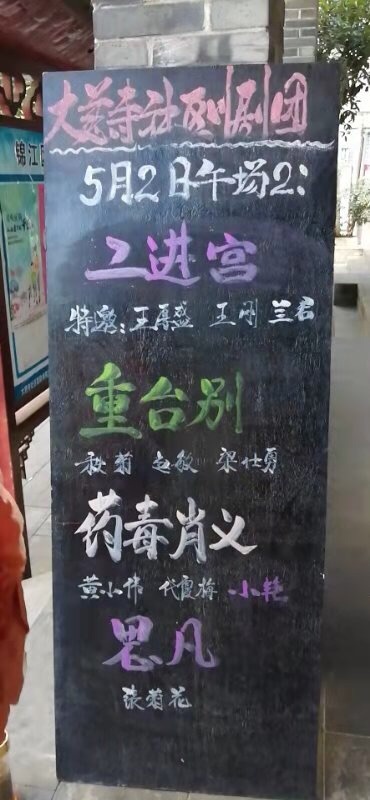 大慈寺社区川剧团
5月2日午场2:
二进宫
特邀:王厚盛 王刚 兰君
重台别
秋菊 赵敏 梁仕勇
药毒肖义
黄小伟 代霞梅 小艳
思凡
张菊花
锦江